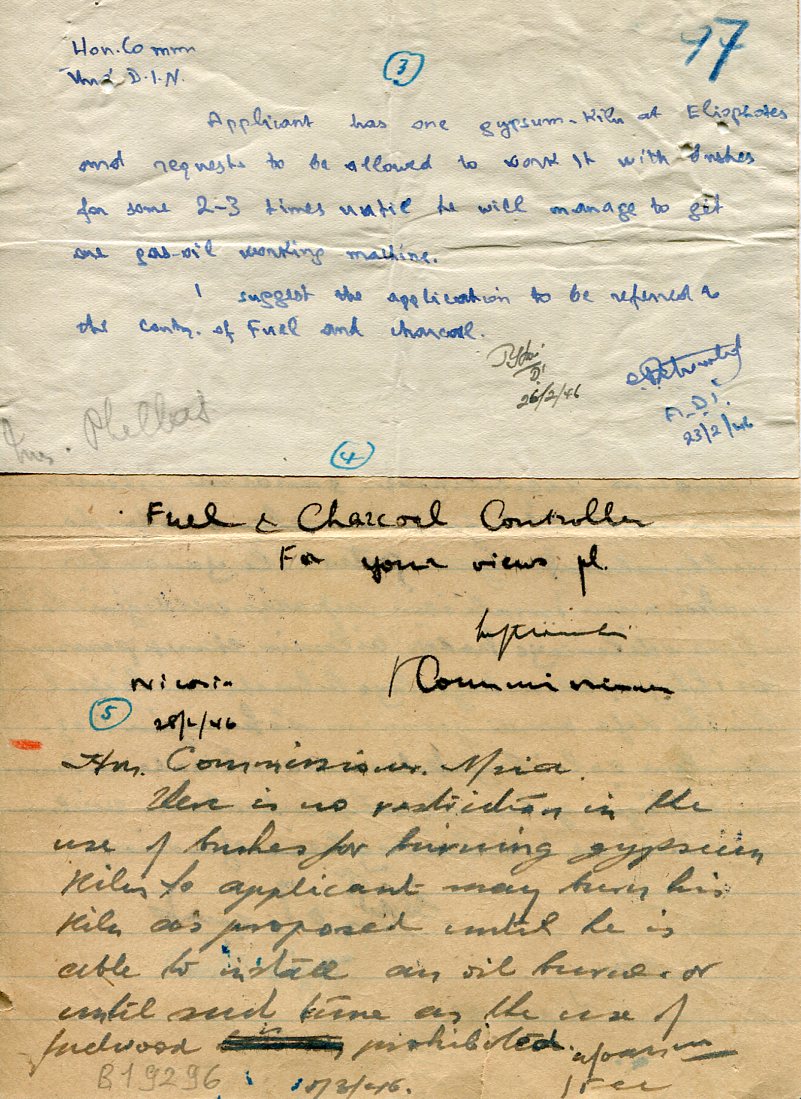 47
Hon. Comm
3
Thro' D.I.N.
Applicant has one gypsum-kiln at Eliophotes
and requests to be allowed to work it with bushes
for some 2-3 times until he will manage to get
one gas-oil working machine.
I suggest the application to be referred to
the Contr. of Fuel and charcoal.
DI
26/2/46
A.D.I.
23/2/46
4
Fuel & Charcoal Controller
For your views pl.
Commissioner
Nicosia
5
28/2/46
Hon. Commissioner. N/sia.
There is no restriction in the
use of bushes for burning gypsum
kilns so applicant may burn his
kiln as proposed until he is
able to install an oil burner or
until such time as the use of
fuelwood prohibited.
B19296
/3/46.